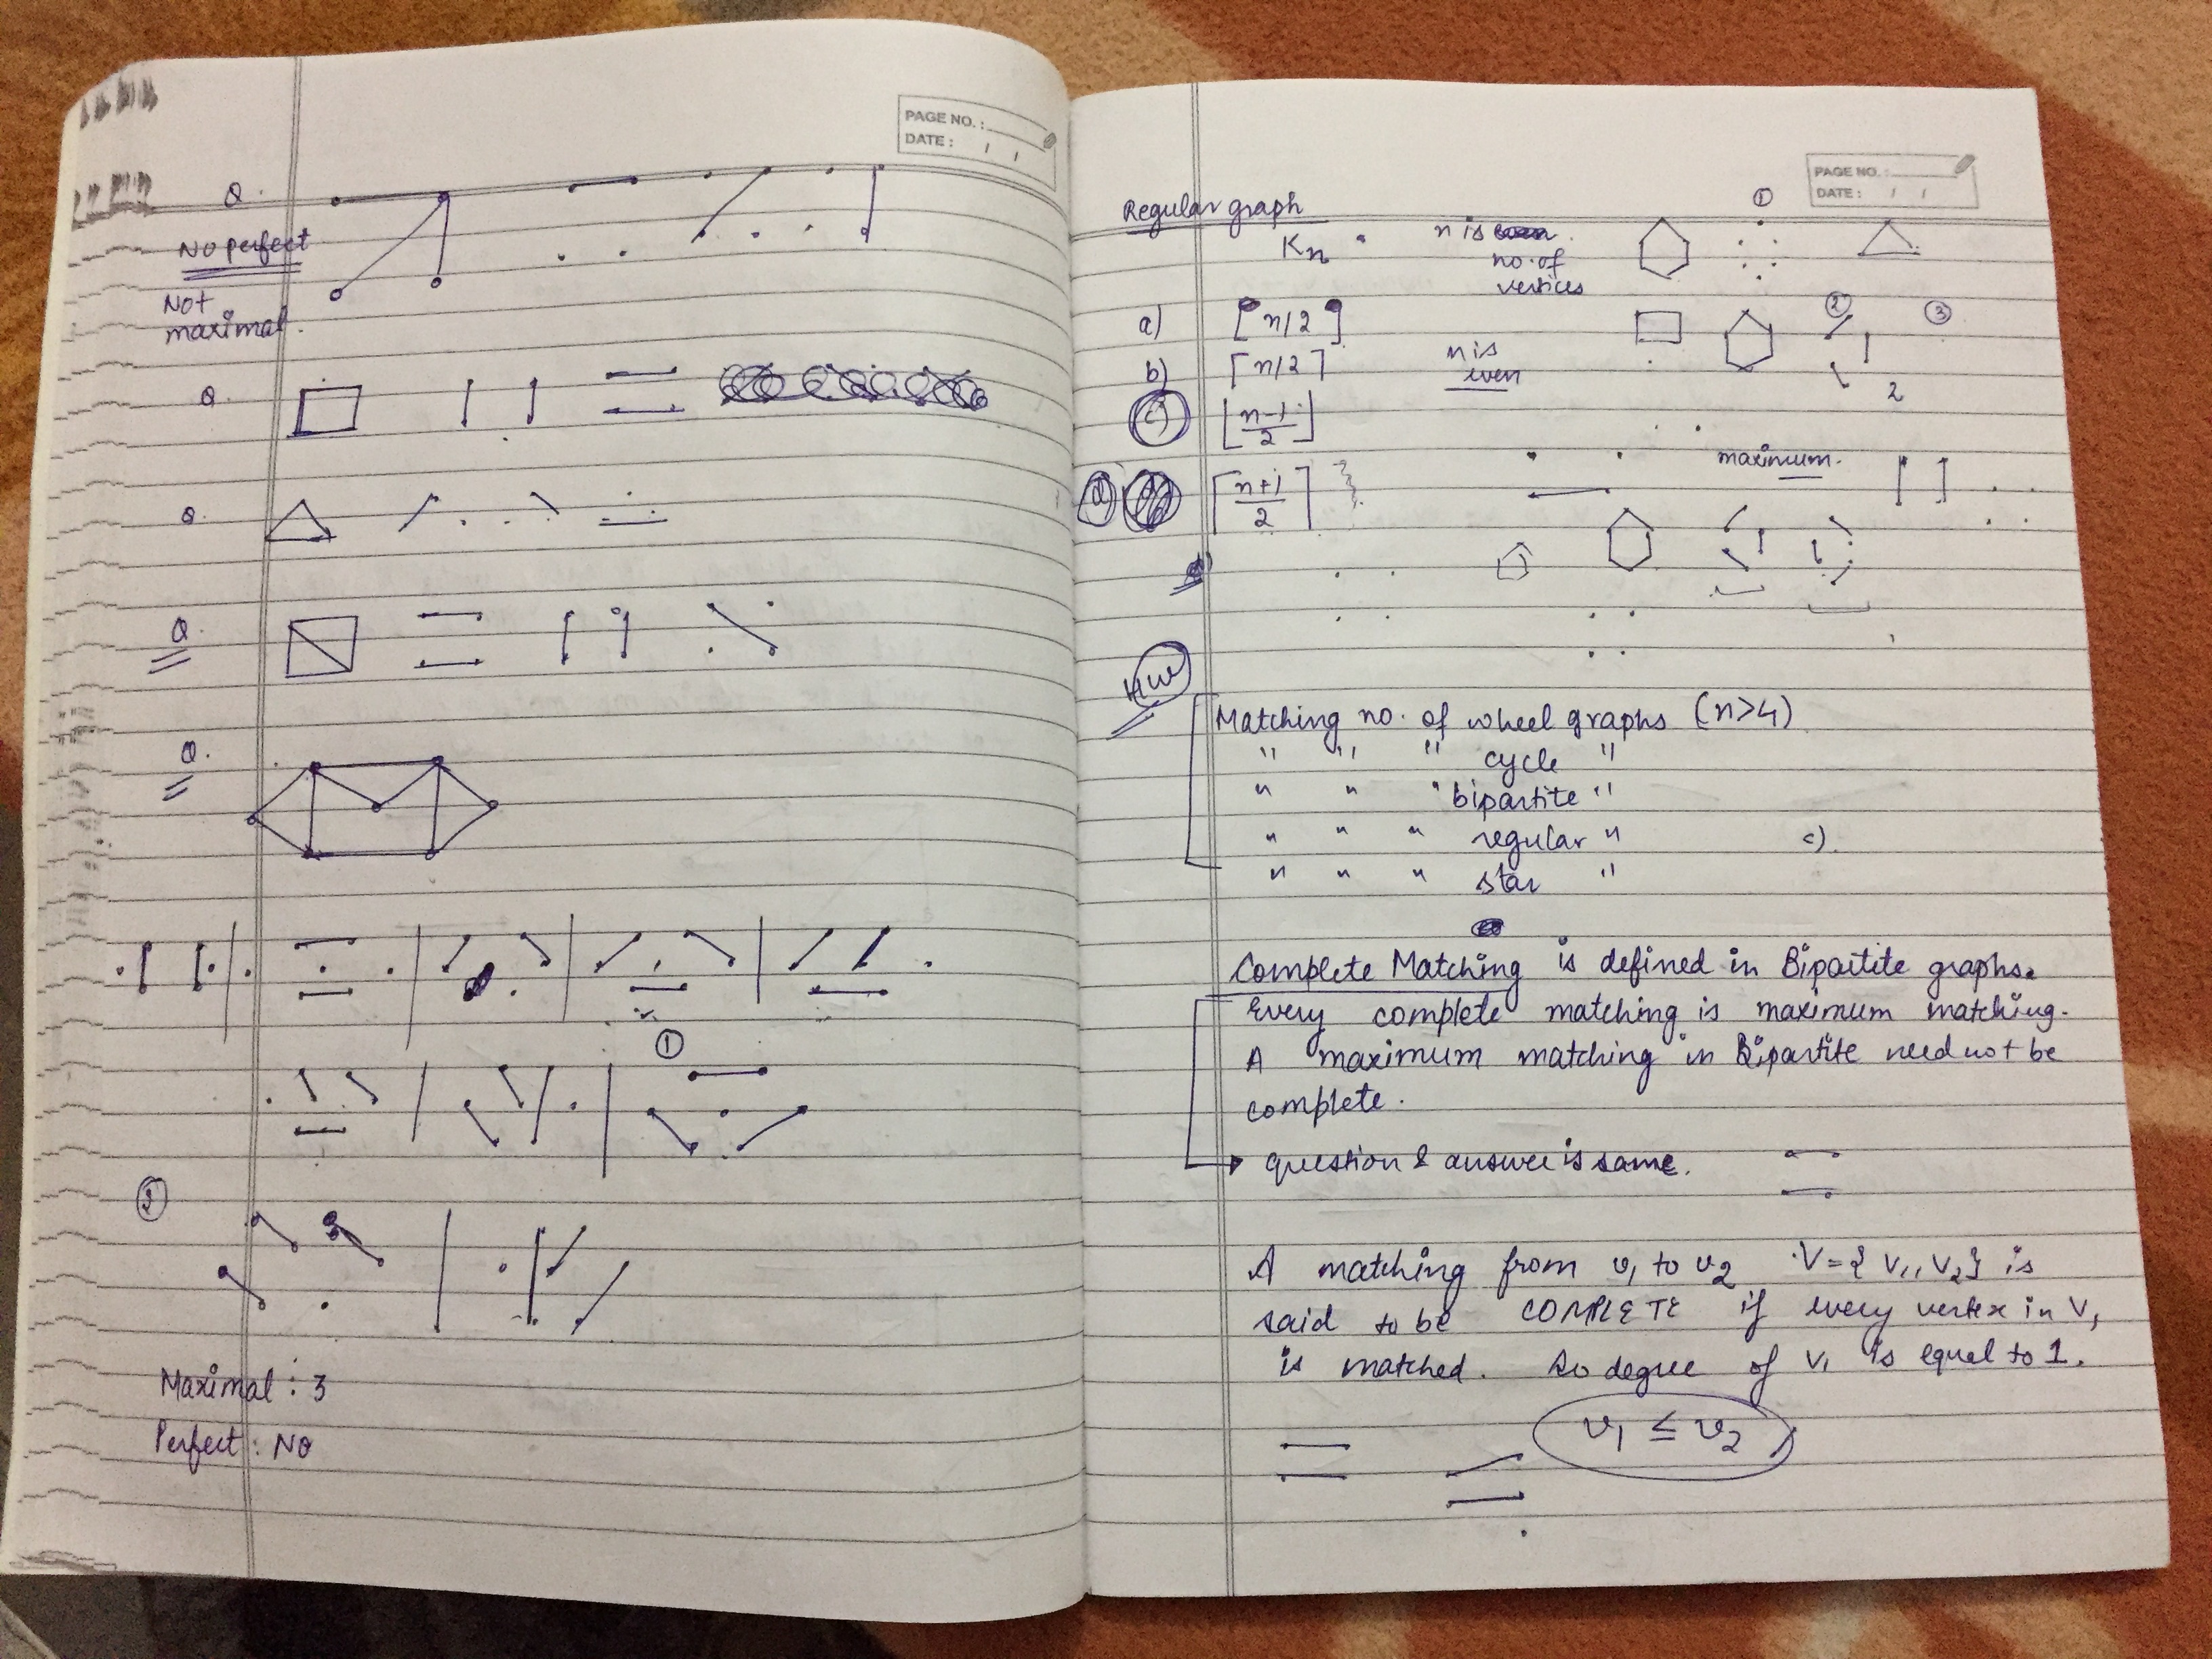 PAGE NO. :
DATE : / /
Q.
No perfect
Not
maximal.
Q.
Q.
Q.
Q.
①
②
Maximal : 3
Perfect : NO
PAGE NO. :
DATE : / /
Regular graph
①
Kn
n is
no. of
vertices
a) [n/2]
② ③
b) ⌈n/2⌉
n is
even
2
c) ⌊n-1/2⌋
maximum.
d) ⌈n+1/2⌉
HW
Matching no. of wheel graphs (n>4)
" " " cycle "
" " " bipartite "
" " " regular " c)
" " " star "
Complete Matching is defined in Bipartite graphs.
Every complete matching is maximum matching.
A maximum matching in Bipartite need not be
complete.
question & answer is same.
A matching from v₁ to v₂ V={V₁, V₂} is
said to be COMPLETE if every vertex in V₁
is matched. So degree of V₁ is equal to 1.
v₁ ≤ v₂